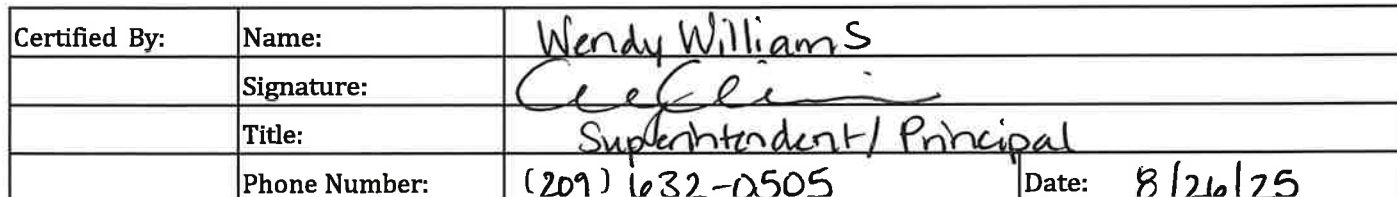 Certified By: Name: Wendy Williams
Signature:
Title: Superintendent/ Principal
Phone Number: (209) 632-0505 Date: 8/26/25